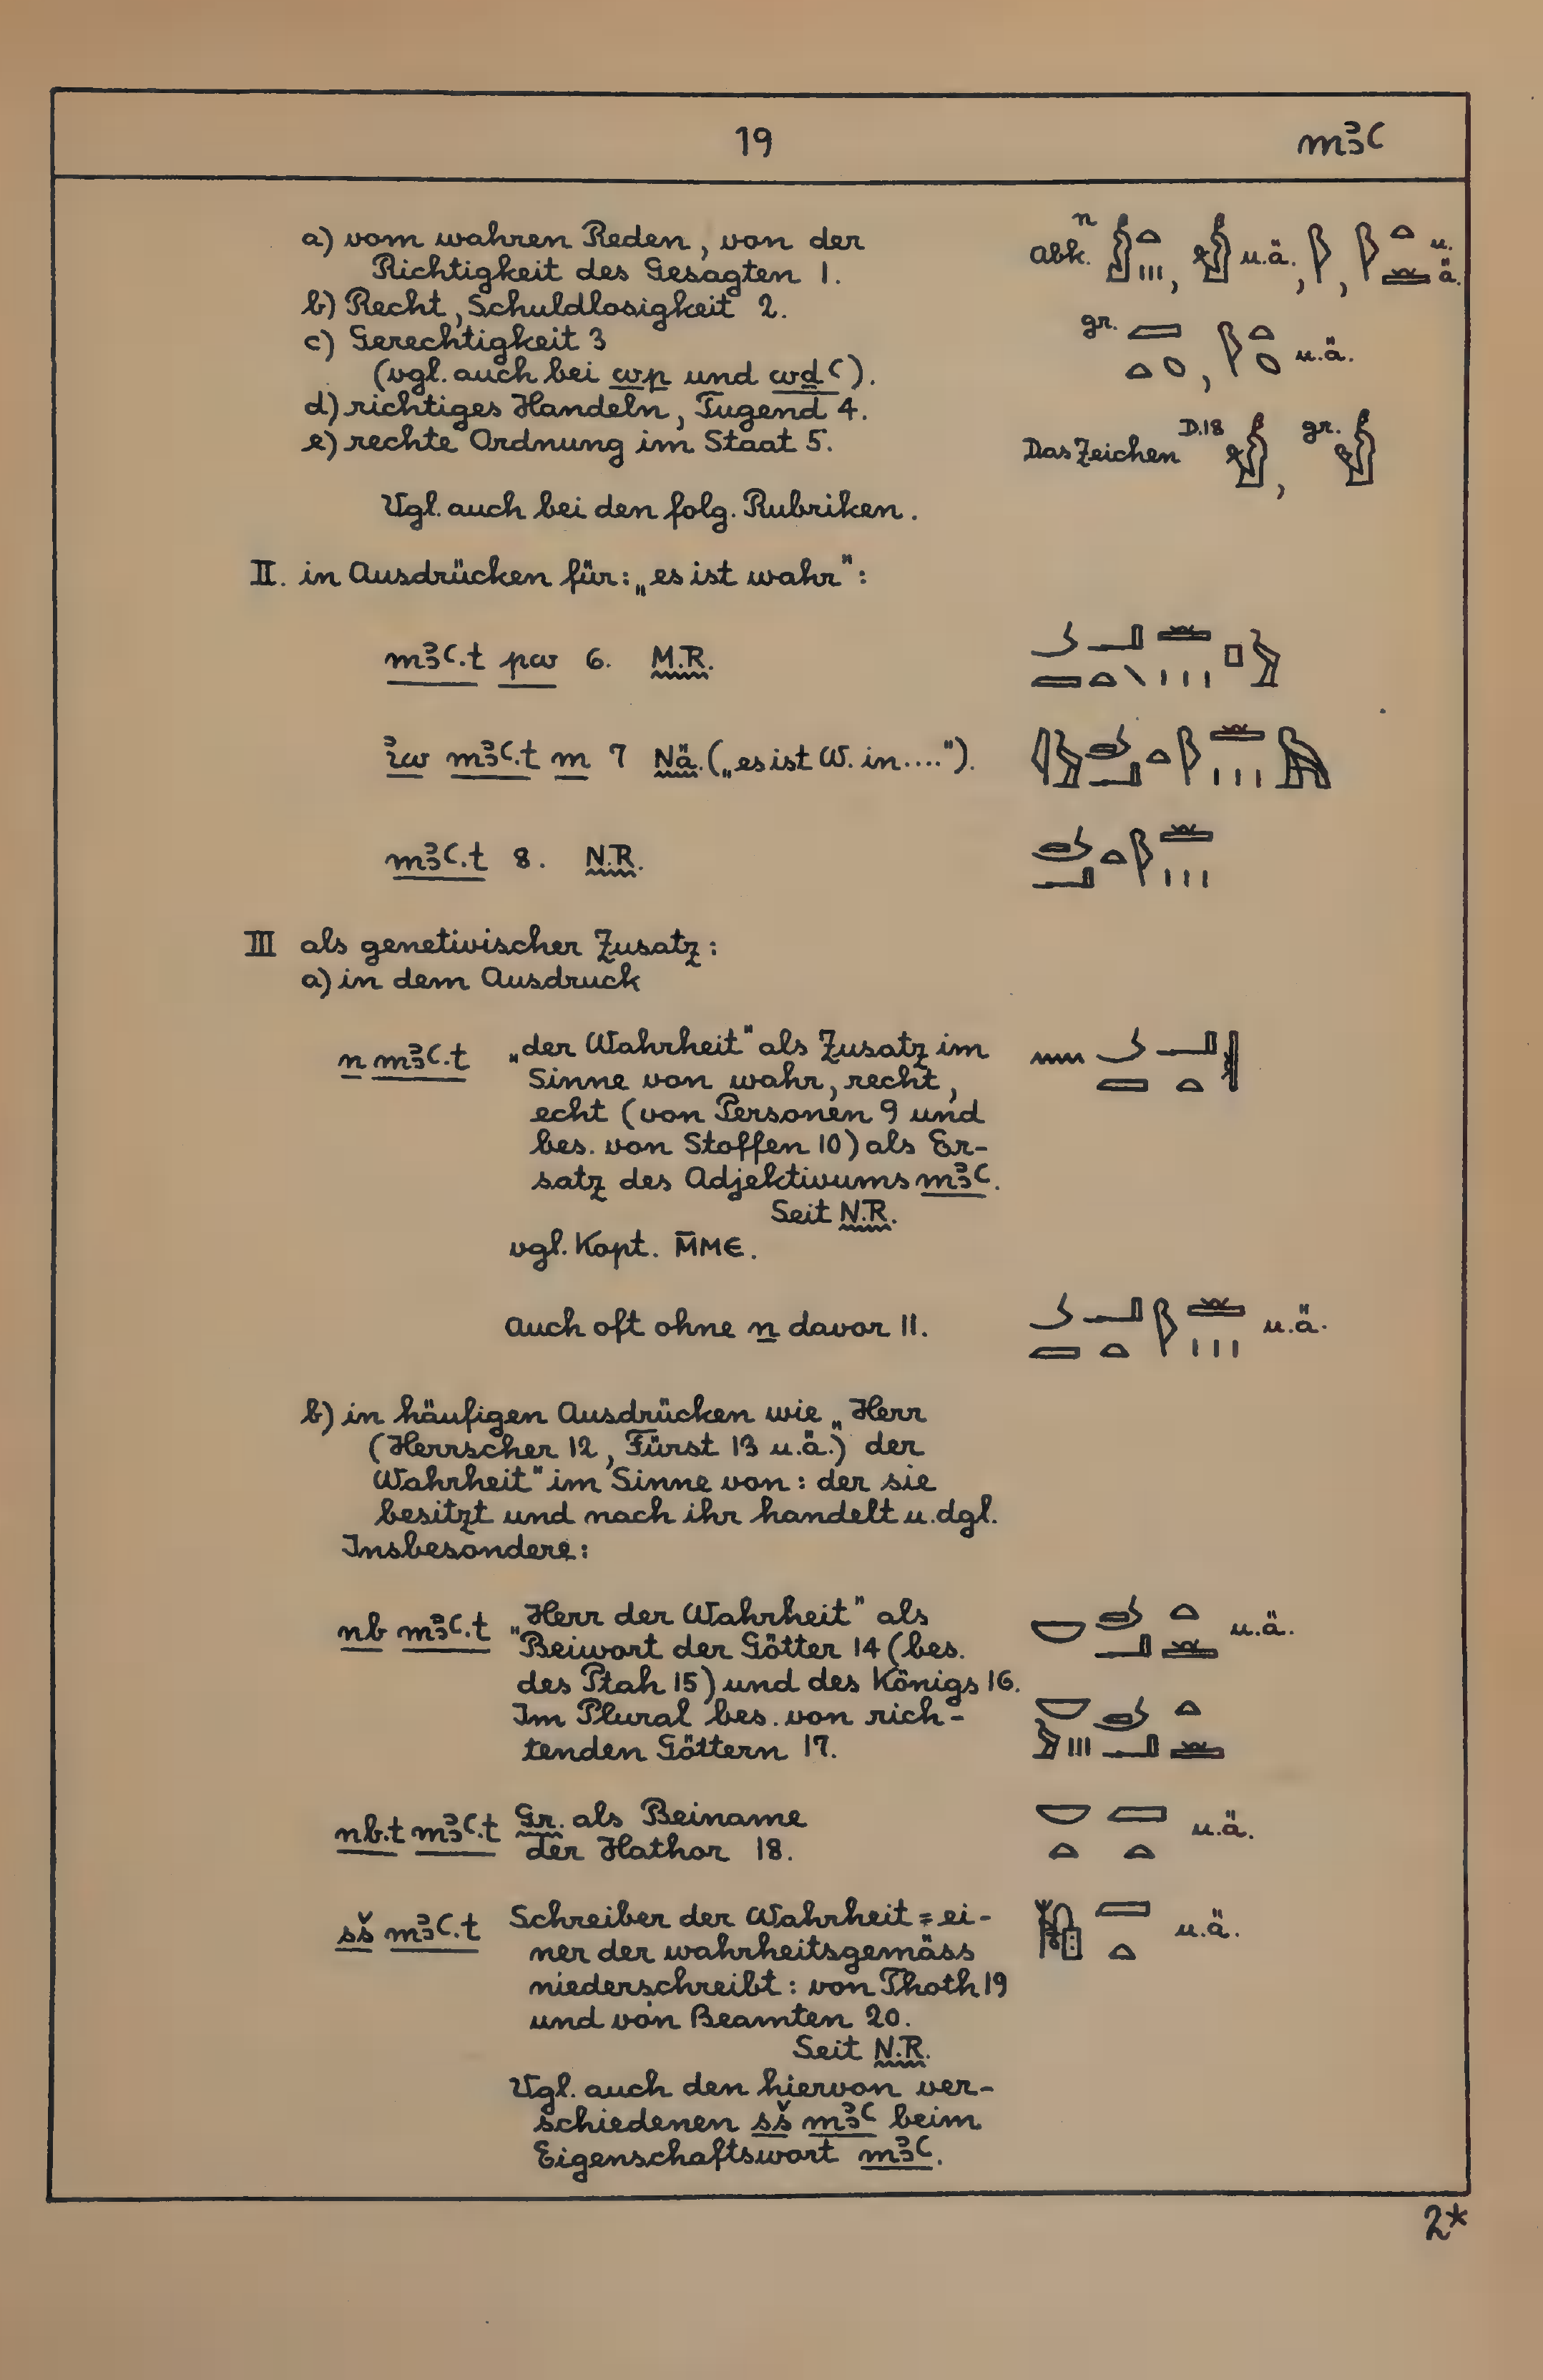 19 mꜣꜥ
a) vom wahren Reden, von der
Richtigkeit des Gesagten 1.
b) Recht, Schuldlosigkeit 2.
c) Gerechtigkeit 3
(vgl. auch bei wp und wdꜥ).
d) richtiges Handeln, Tugend 4.
e) rechte Ordnung im Staat 5.
n
Abk. , u.ä., , u.ä.
gr. , u.ä.
Das Zeichen D.18 , gr.
Vgl. auch bei den folg. Rubriken.
II. in Ausdrücken für: „es ist wahr":
mꜣꜥ.t pw 6. M.R.
ı͗w mꜣꜥ.t m 7 Nä. („es ist W. in....").
mꜣꜥ.t 8. N.R.
III als genetivischer Zusatz:
a) in dem Ausdruck
n mꜣꜥ.t „der Wahrheit" als Zusatz im
Sinne von wahr, recht,
echt (von Personen 9 und
bes. von Stoffen 10) als Er-
satz des Adjektivums mꜣꜥ.
Seit N.R.
vgl. Kopt. ⲙ̅ⲙⲉ.
Auch oft ohne n davor 11. u.ä.
b) in häufigen Ausdrücken wie „Herr
(Herrscher 12, Fürst 13 u.ä.) der
Wahrheit" im Sinne von: der sie
besitzt und nach ihr handelt u.dgl.
Insbesondere:
nb mꜣꜥ.t „Herr der Wahrheit" als u.ä.
Beiwort der Götter 14 (bes.
des Ptah 15) und des Königs 16.
Im Plural bes. von rich-
tenden Göttern 17.
nb.t mꜣꜥ.t Gr. als Beiname u.ä.
der Hathor 18.
sš mꜣꜥ.t Schreiber der Wahrheit = ei- u.ä.
ner der wahrheitsgemäss
niederschreibt: von Thoth 19
und von Beamten 20.
Seit N.R.
Vgl. auch den hiervon ver-
schiedenen sš mꜣꜥ beim
Eigenschaftswort mꜣꜥ.
2*